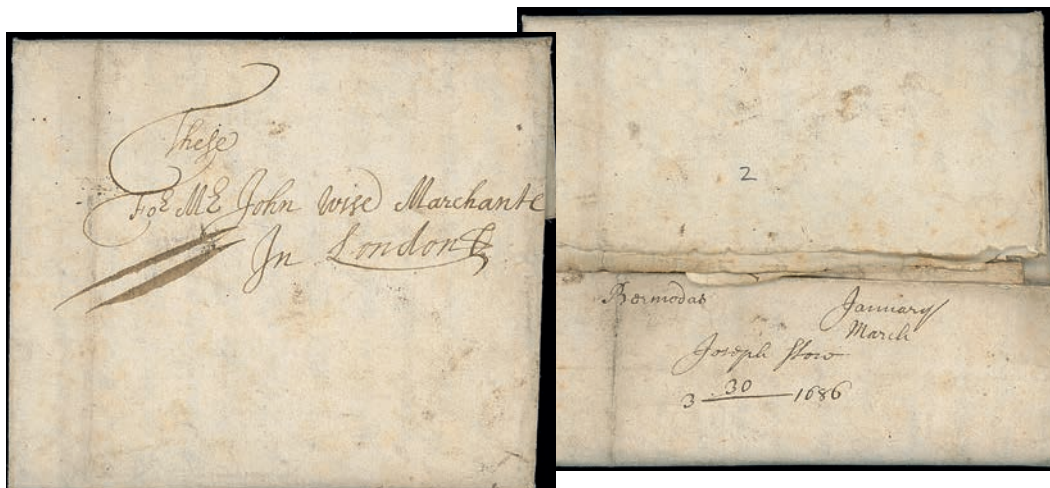 These
For Mr John Wise Marchante
In London
2
Bermodas
January
March
Joseph Stow
3 30 1686